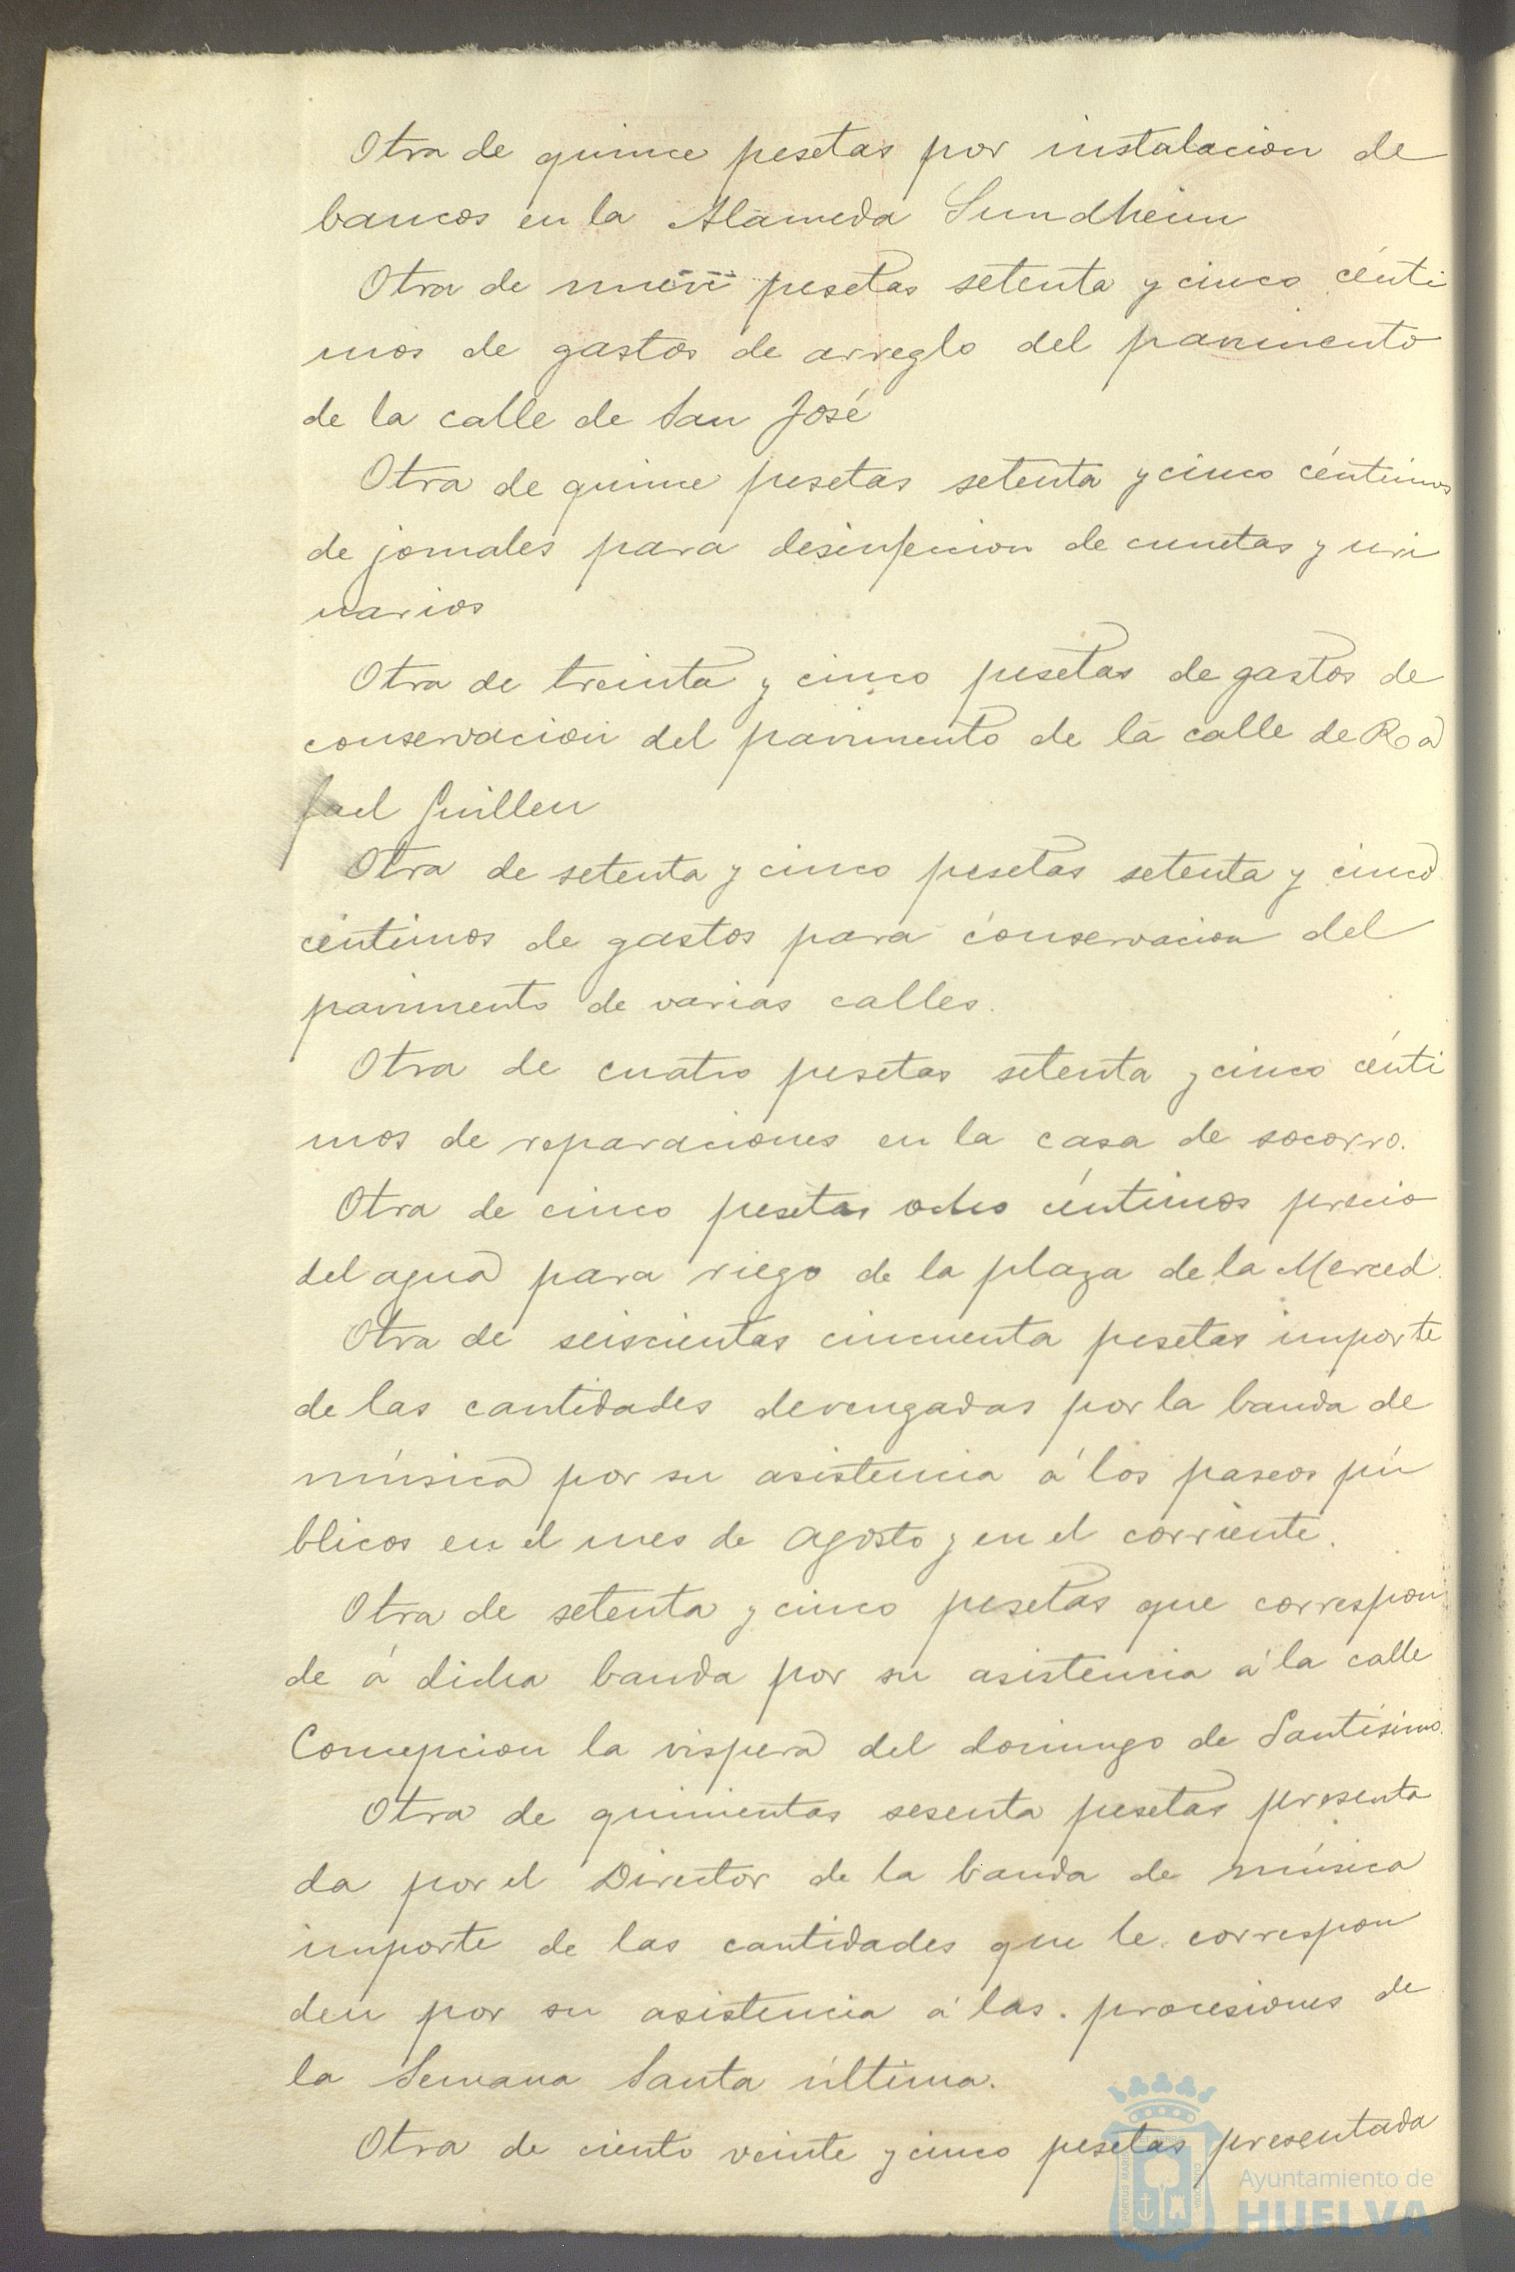 Otra de quince pesetas por instalacion de
bancos en la Alameda Sundheim
Otra de nueve pesetas setenta y cinco cénti
mos de gastos de arreglo del pavimento
de la calle de San José
Otra de quince pesetas setenta y cinco céntimos
de jornales para desinfeccion de cunetas y uri
narios
Otra de treinta y cinco pesetas de gastos de
conservacion del pavimento de la calle de Ra
fael Guillen
Otra de setenta y cinco pesetas setenta y cinco
céntimos de gastos para conservacion del
pavimento de varias calles.
Otra de cuatro pesetas setenta y cinco cénti
mos de reparaciones en la casa de socorro.
Otra de cinco pesetas ocho céntimos precio
del agua para riego de la plaza de la Merced.
Otra de seiscientas cincuenta pesetas importe
de las cantidades devengadas por la banda de
música por su asistencia á los paseos pú
blicos en el mes de Agosto y en el corriente.
Otra de setenta y cinco pesetas que correspon
de á dicha banda por su asistencia á la calle
Concepcion la vispera del domingo de Santísimo.
Otra de quinientas sesenta pesetas presenta
da por el Director de la banda de música
importe de las cantidades que le correspon
den por su asistencia á las procesiones de
la Semana Santa última.
Otra de ciento veinte y cinco pesetas presentada
Ayuntamiento de
HUELVA